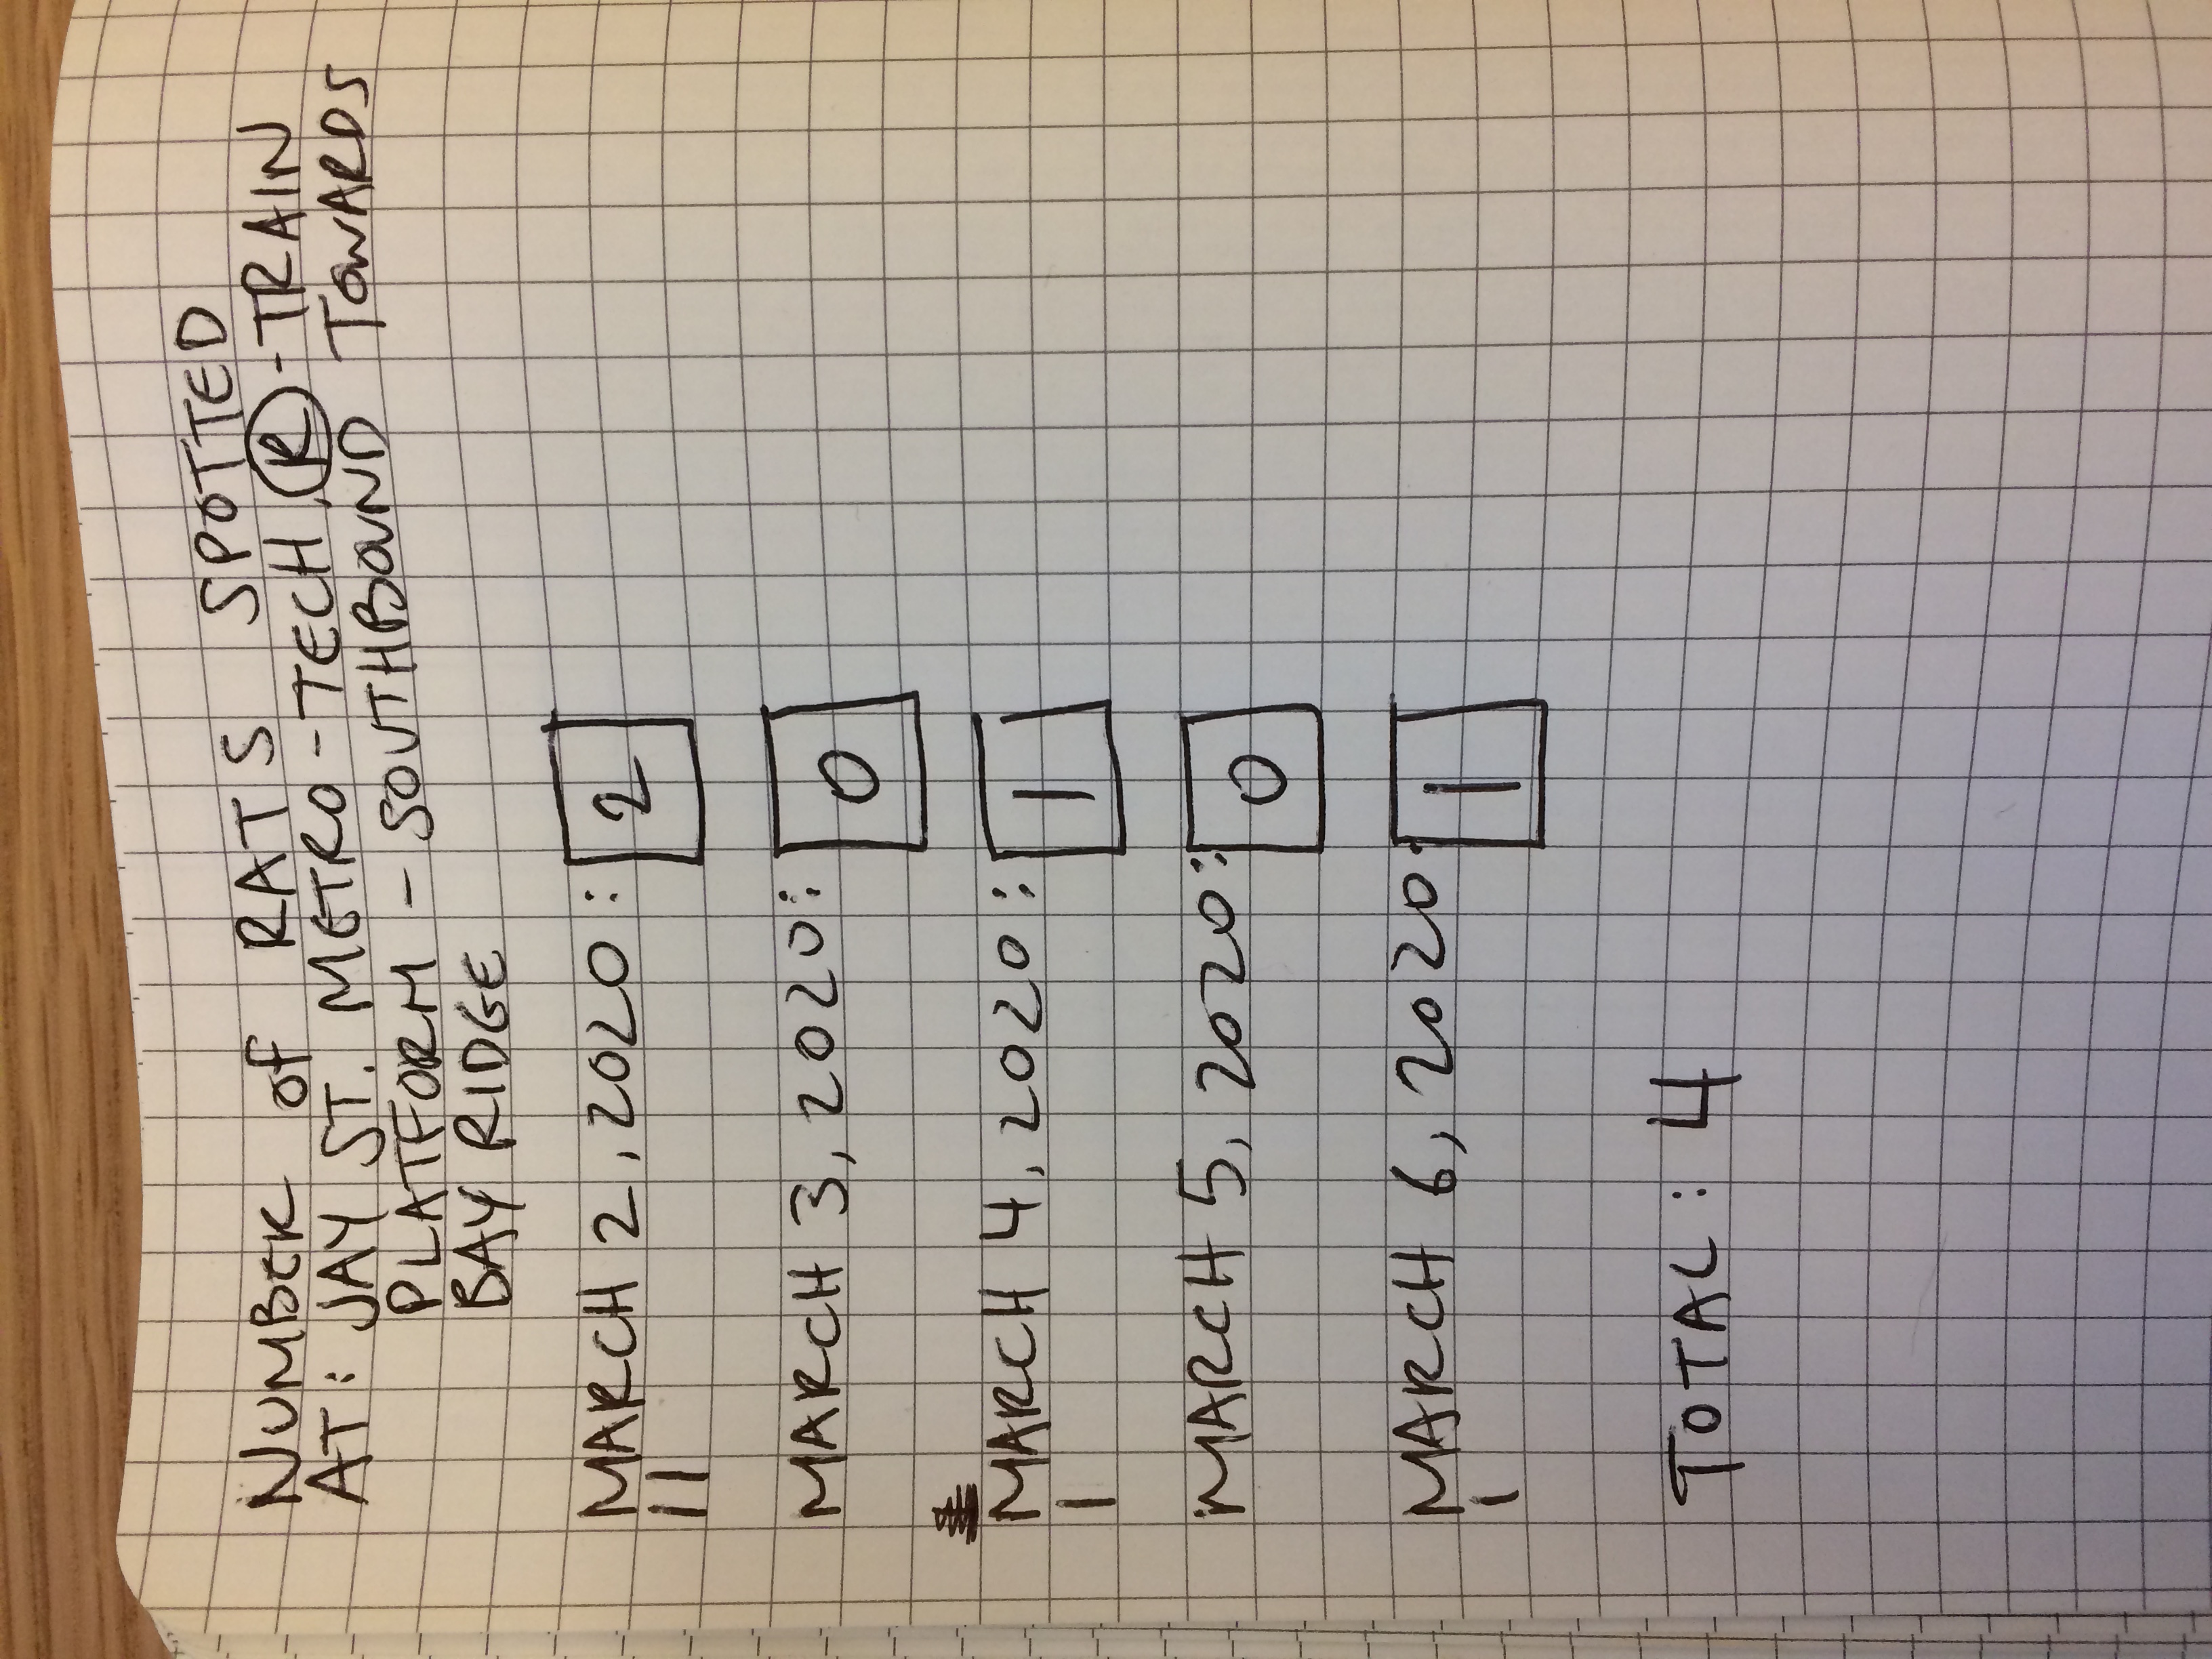 NUMBER of RATS SPOTTED
AT: JAY ST. METRO-TECH, R-TRAIN
PLATFORM - SOUTHBOUND TOWARDS
BAY RIDGE
MARCH 2, 2020: 2
||
MARCH 3, 2020: 0
MARCH 4, 2020: 1
|
MARCH 5, 2020: 0
MARCH 6, 2020: 1
|
TOTAL: 4